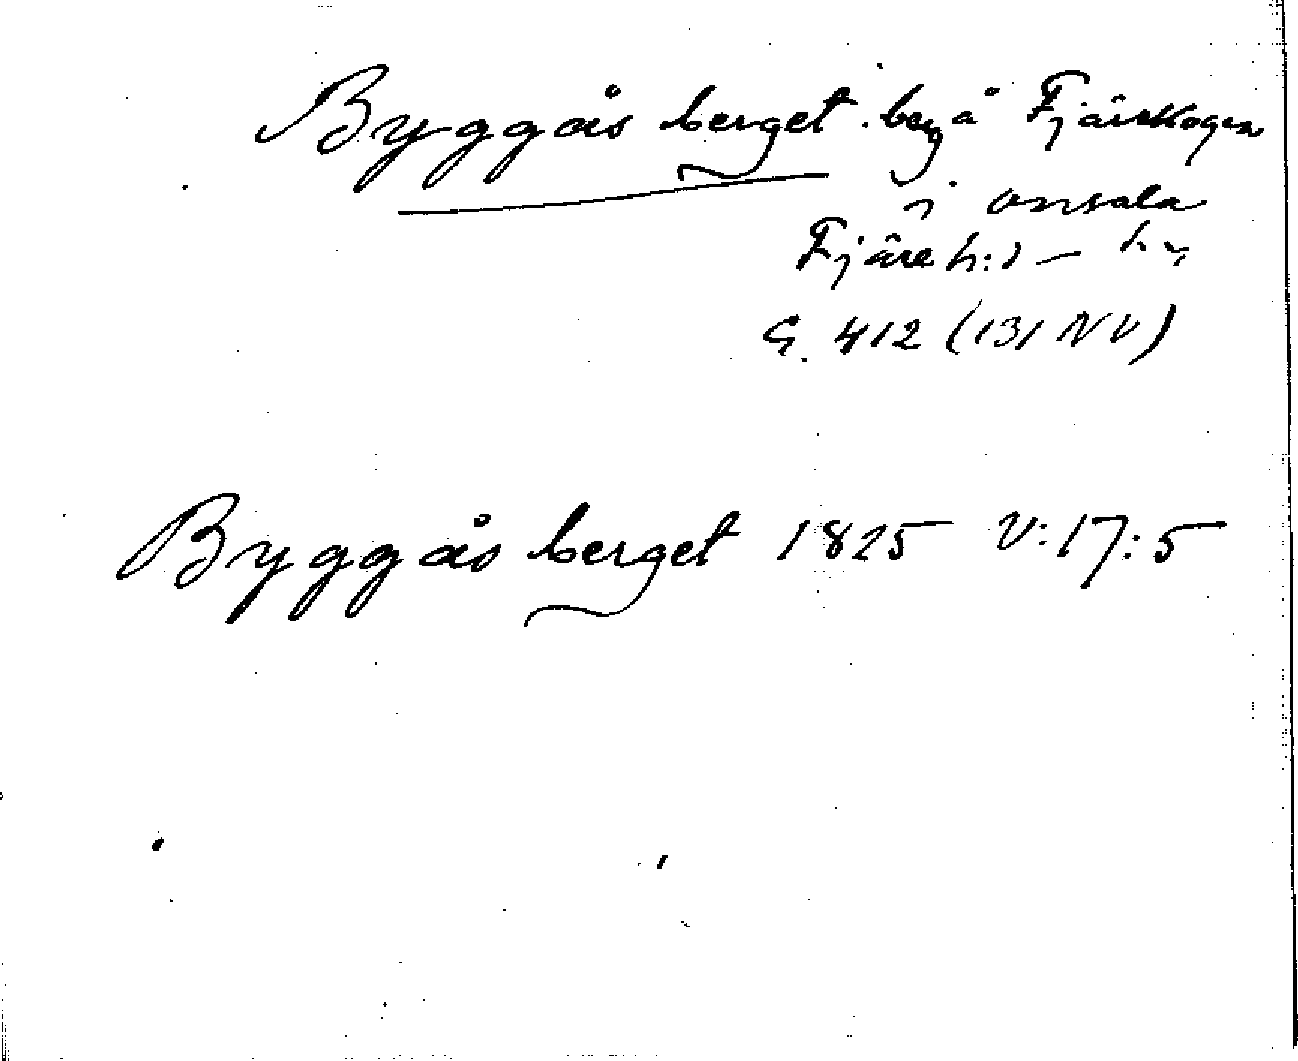 Byggås berget. beg å Fjäreskogen
i Onsala
Fjäre h:d –
G. 412 (131 NV)
Byggås berget 1825 V:17:5